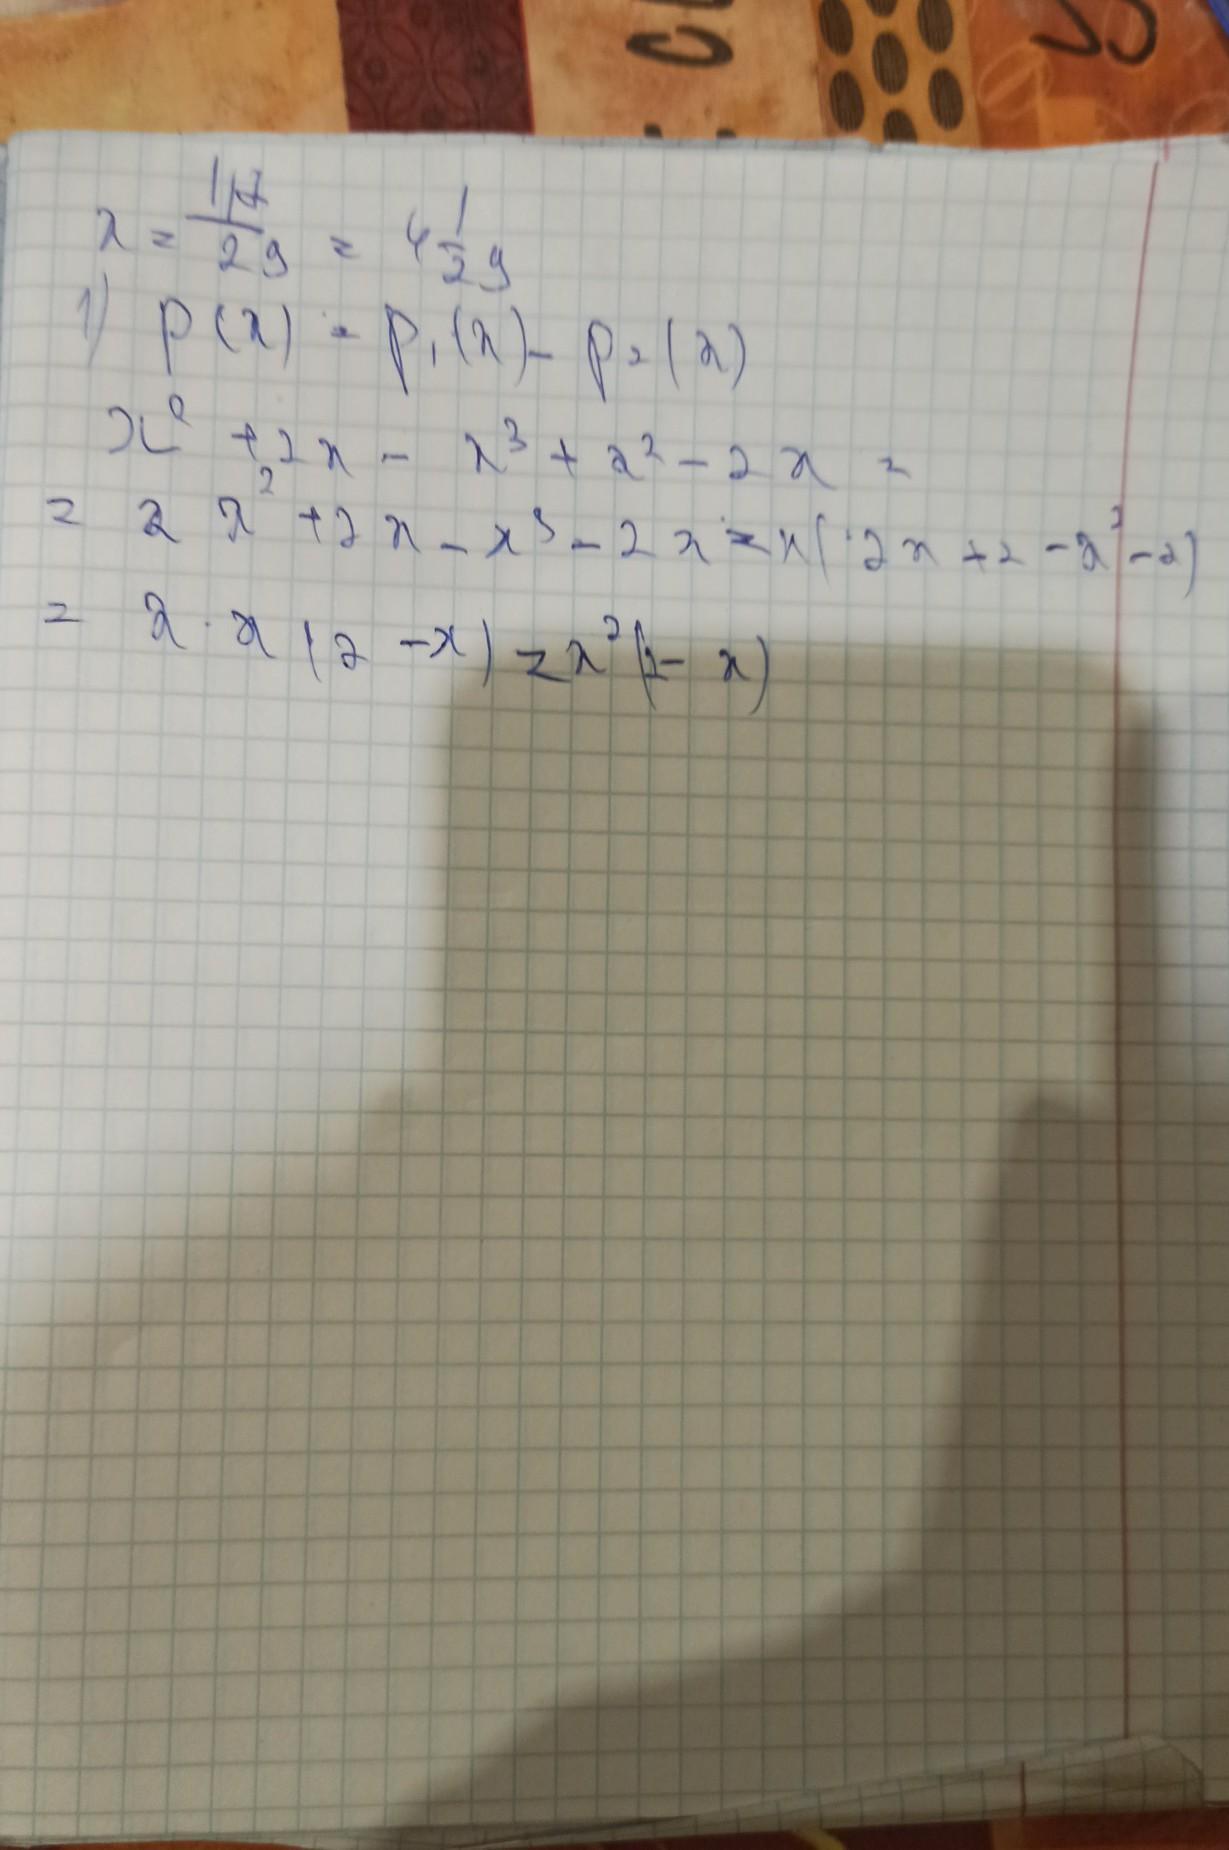 x = 117/29 = 4 1/29
1) P(x) = P₁(x) - P₂(x)
x² + 2x - x³ + x² - 2x =
= 2x² + 2x - x³ - 2x = x(2x + 2 - x² - 2)
= x · x(2 - x) = x²(2 - x)